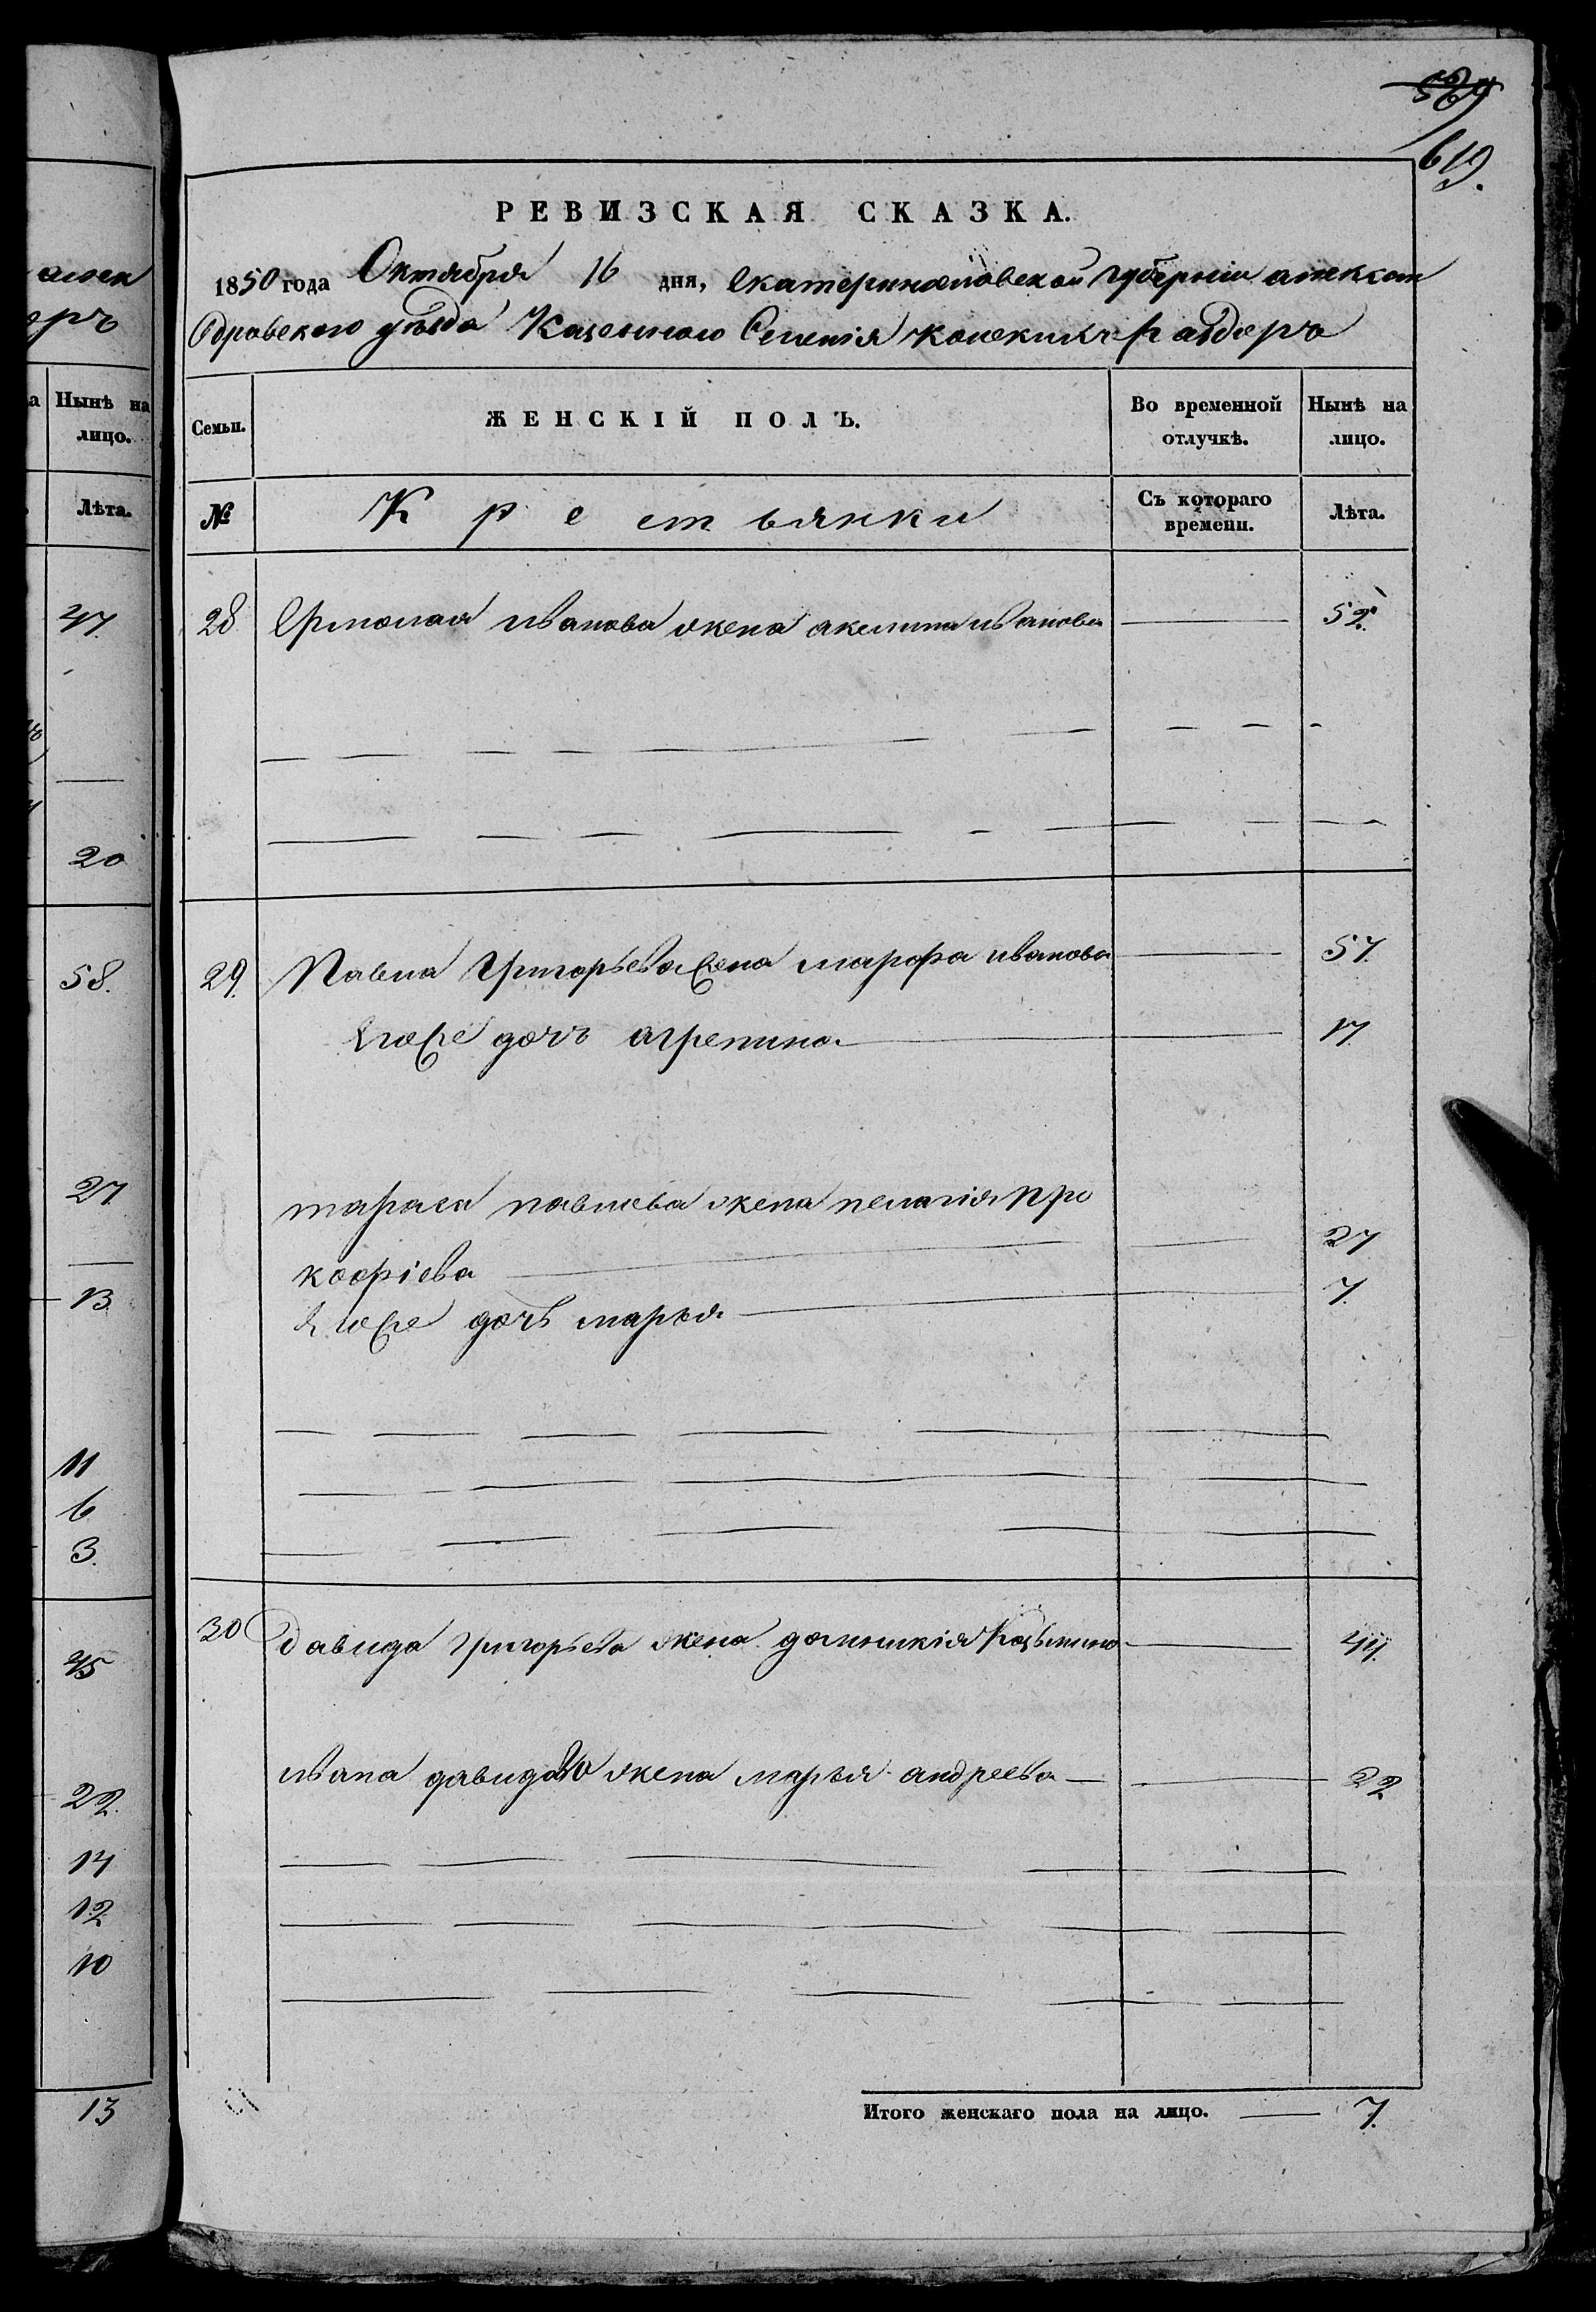 алек
оръ
а Нынѣ на
лицо.
Лѣта.
47.
20
58.
27
13.
11
6
3.
45
22.
14
12
10
13
529
619.
РЕВИЗСКАЯ СКАЗКА.
1850 года Октября 16 дня, Екатеринославской губерніи алексан
дровского уѣзда Казенного Селенія конскихъ раздоръ
Семьи. ЖЕНСКІЙ ПОЛЪ. Во временной отлучкѣ. Нынѣ на лицо.
№ Крестьянки Съ котораго времени. Лѣта.
28 Ермолая иванова жена акилина иванова 52.
29. Павла Григорьева жена марфа иванова 57.
Егоже дочь агрепина 17.
тараса павлова жена пелагія про
кофіева 27
Егоже дочь марья 7.
30 давида григорьева жена домникія Козьмина 44.
ивана давидова жена марья андреева 22
Итого женскаго пола на лицо. 7.